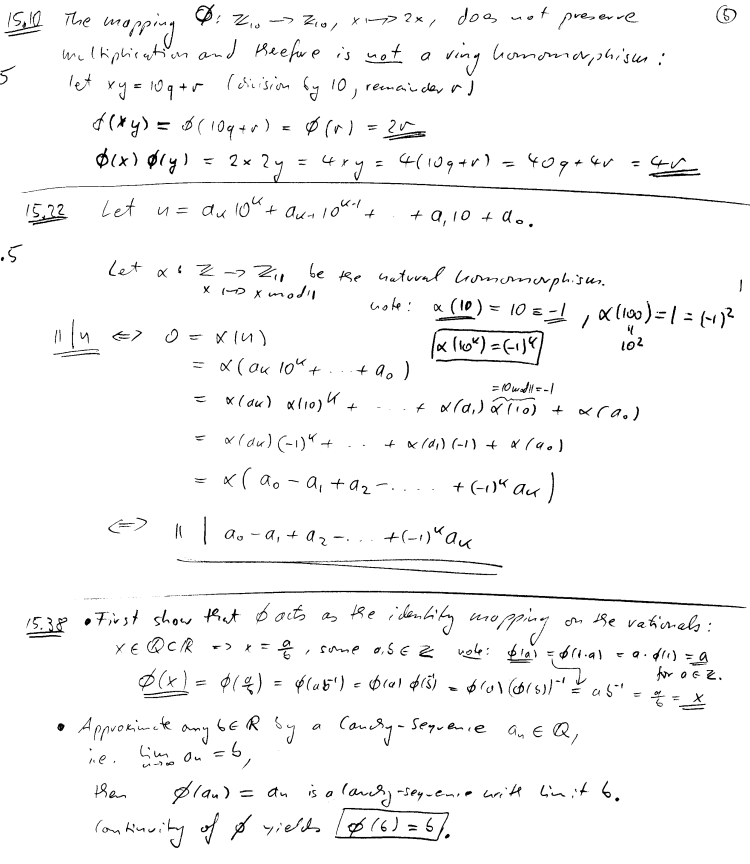 15.10 The mapping Φ: Z₁₀ → Z₁₀, x ↦ 2x, does not preserve ⑤
multiplication and therefore is not a ring homomorphism:
5
let xy = 10q + r (division by 10, remainder r)
ϕ(xy) = ϕ(10q+r) = ϕ(r) = 2r
ϕ(x) ϕ(y) = 2x 2y = 4xy = 4(10q+r) = 40q + 4r = 4r
15.22 Let n = aₖ10ᵏ + aₖ₋₁10ᵏ⁻¹ + .. + a₁10 + a₀.
.5
Let α : Z → Z₁₁ be the natural homomorphism.
x ↦ x mod 11
1
note: α(10) = 10 ≡ -1, α(100) = 1 = (-1)²
α(10ᵏ) = (-1)ᵏ
"
10²
11|n ⇔ 0 = α(n)
= α(aₖ 10ᵏ + ... + a₀)
= 10 mod 11 = -1
= α(aₖ) α(10)ᵏ + .... + α(a₁) α(10) + α(a₀)
= α(aₖ)(-1)ᵏ + ... + α(a₁)(-1) + α(a₀)
= α(a₀ - a₁ + a₂ - ..... + (-1)ᵏ aₖ)
⇔ 11 | a₀ - a₁ + a₂ - ... + (-1)ᵏ aₖ
15.38 • First show that ϕ acts as the identity mapping on the rationals:
x ∈ Q ⊂ R ⇒ x = a/b, some a,b ∈ Z note: ϕ(a) = ϕ(1·a) = a·ϕ(1) = a
for a ∈ Z.
ϕ(x) = ϕ(a/b) = ϕ(ab⁻¹) = ϕ(a) ϕ(b⁻¹) = ϕ(a)(ϕ(b))⁻¹ = ab⁻¹ = a/b = x
• Approximate any b ∈ R by a Cauchy-Sequence aₙ ∈ Q,
i.e. lim n→∞ aₙ = b,
then ϕ(aₙ) = aₙ is a Cauchy-sequence with limit b.
Continuity of ϕ yields ϕ(b) = b.